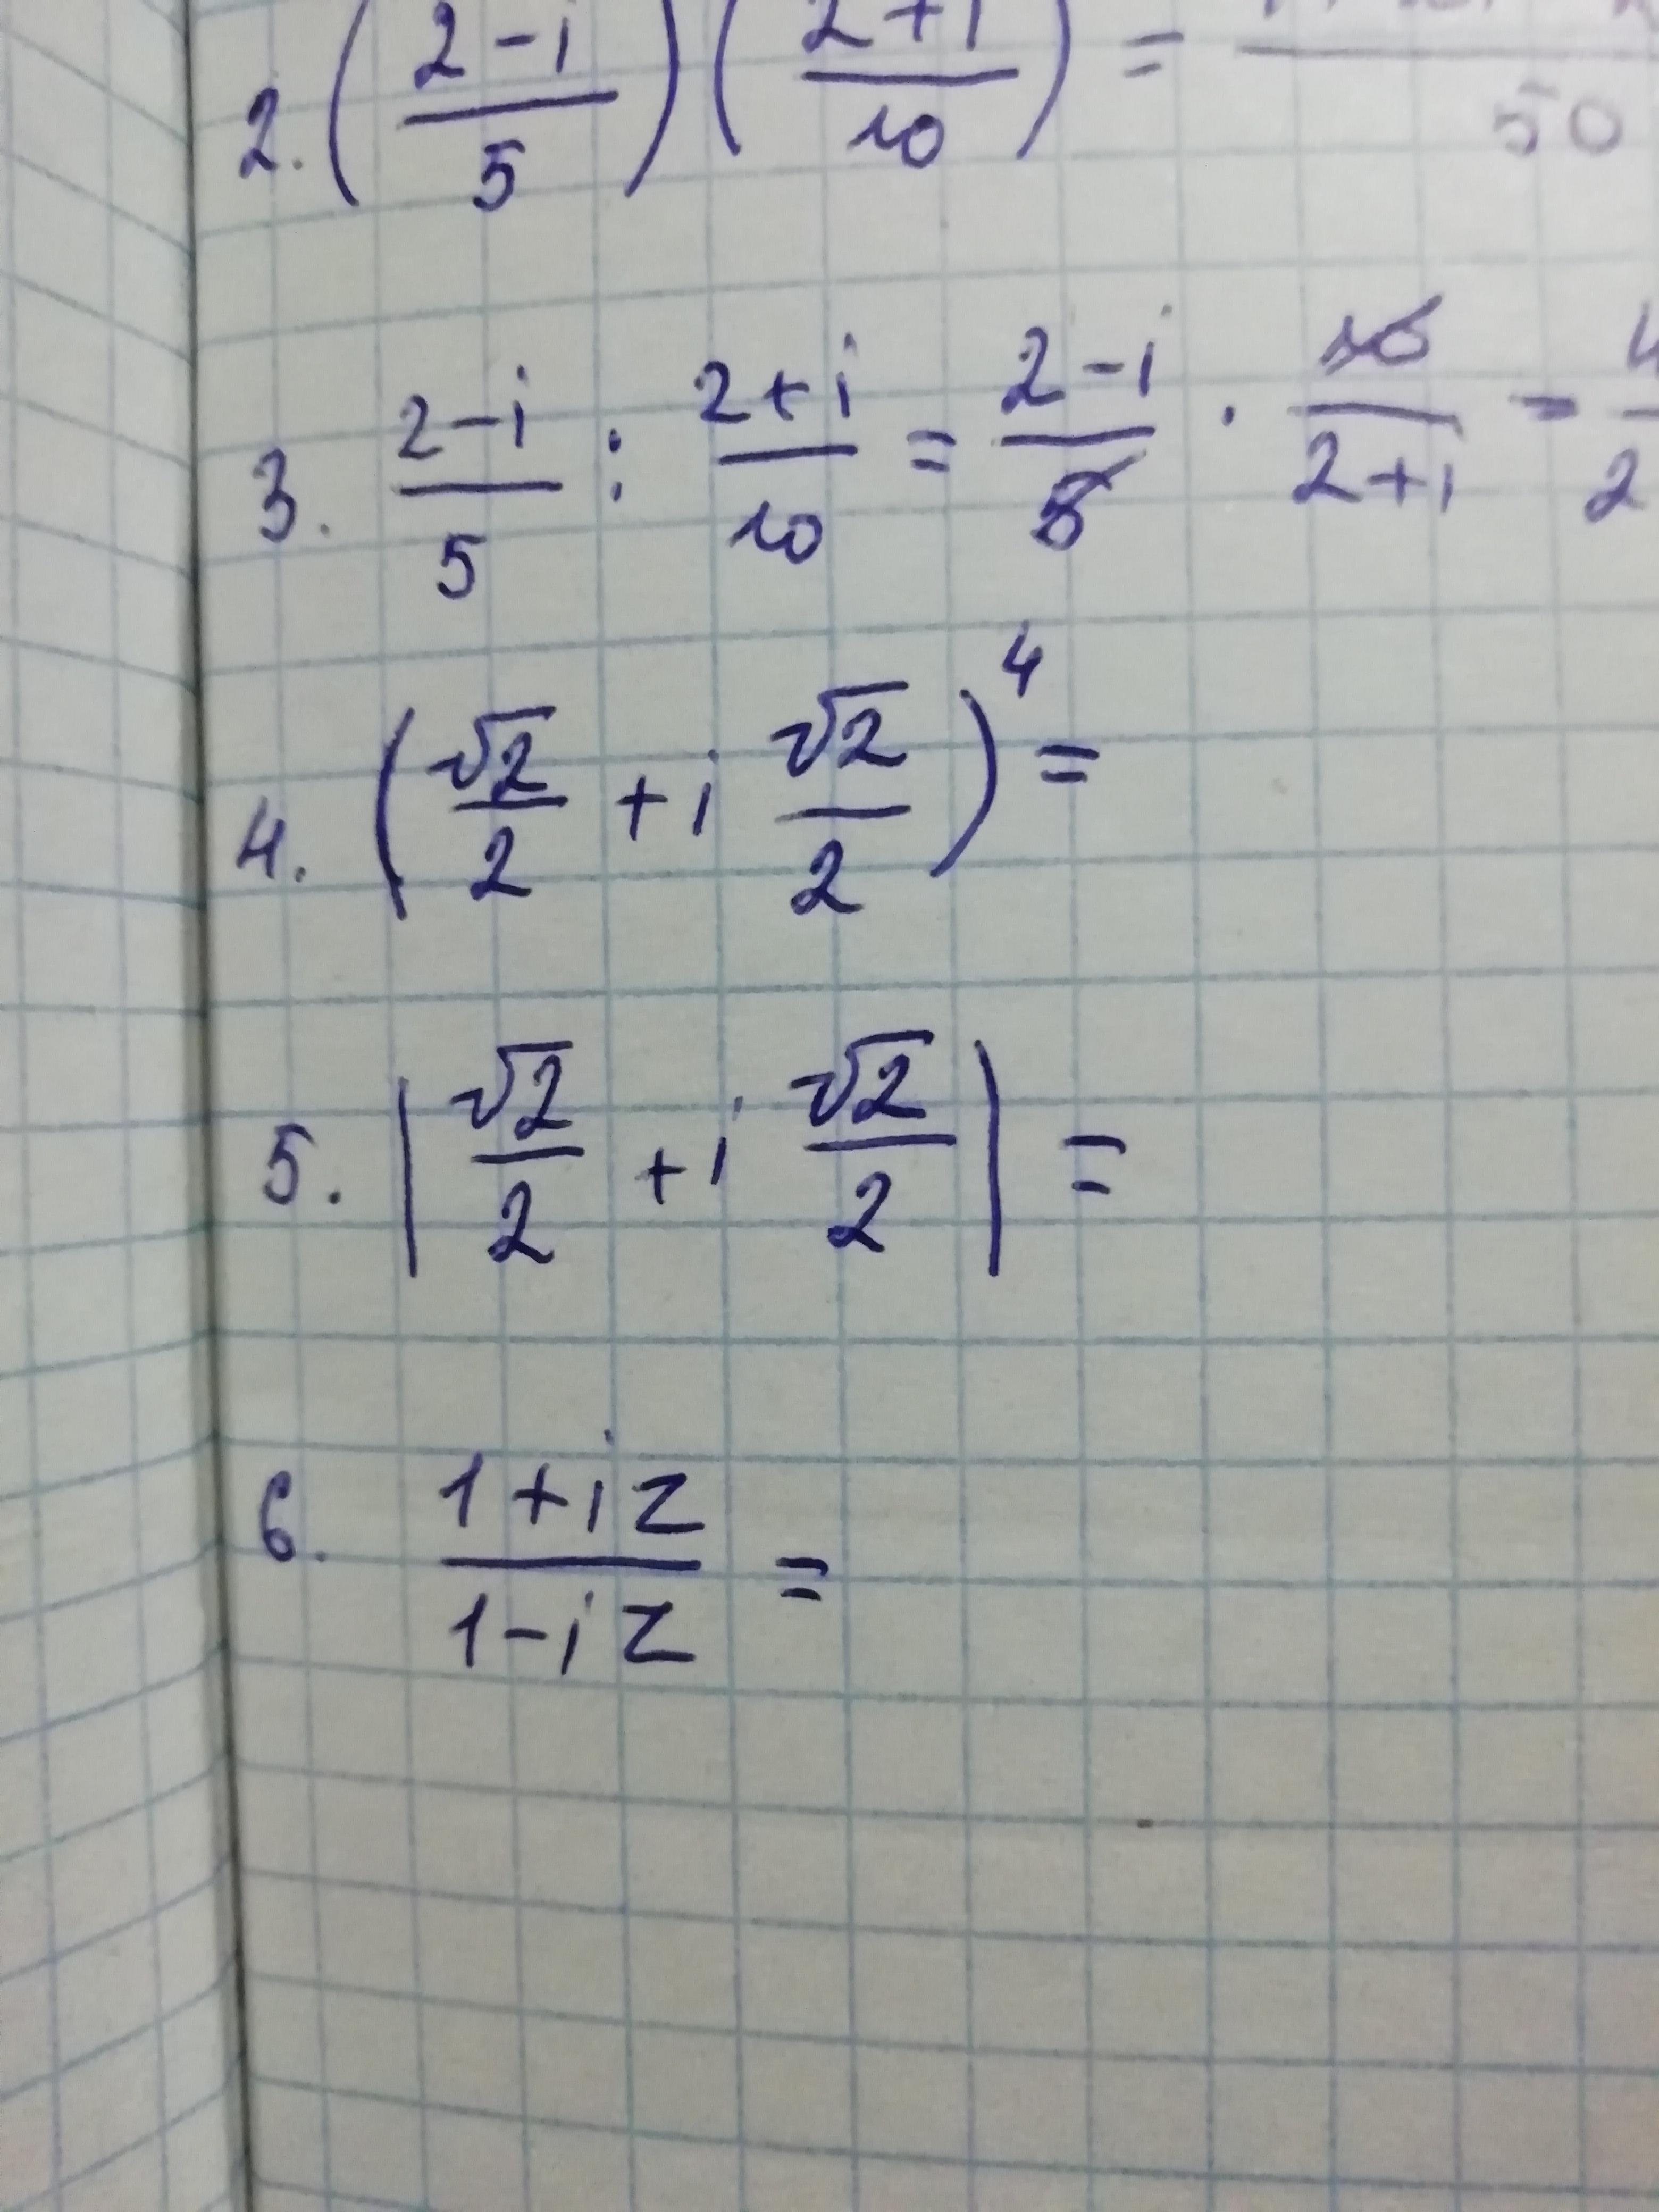 2. ((2-i)/5) ((2+i)/10) = /50
3. (2-i)/5 : (2+i)/10 = (2-i)/5 · 10/(2+i) = 4/2
4. (√2/2 + i √2/2)^4 =
5. |√2/2 + i √2/2| =
6. (1+iz)/(1-iz) =